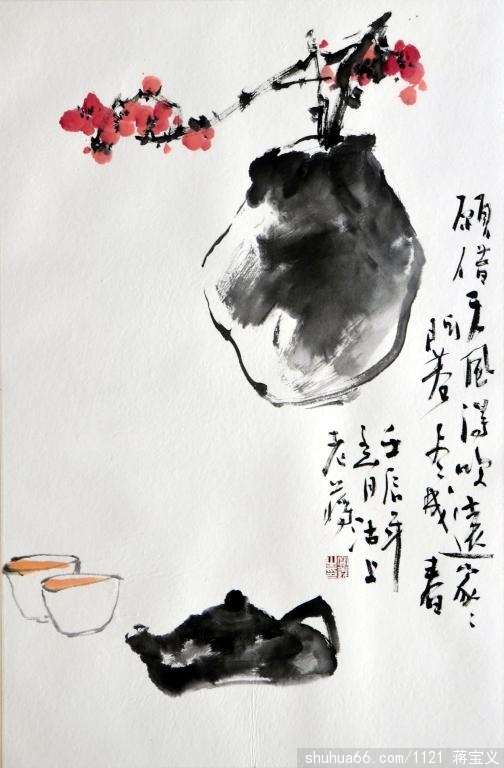 願借天風得吹遠家々
門巷尽成春
壬辰年
月沽上
老蔣
shuhua66.com/1121 蒋宝义